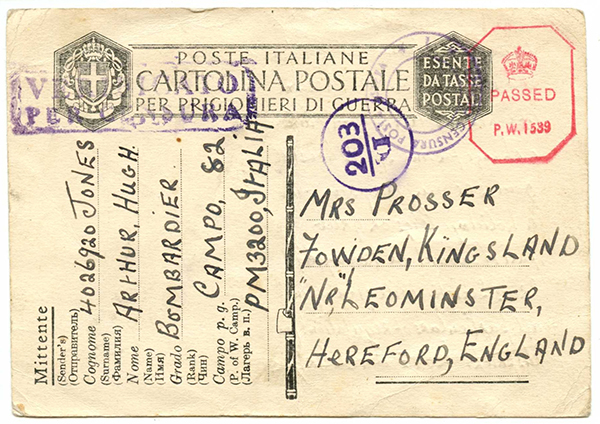 POSTE ITALIANE
CARTOLINA POSTALE
PER PRIGIONIERI DI GUERRA
ESENTE
DA TASSE
POSTALI
PER CENSURA
CENSURA POST
PASSED
P.W. 1539
203
Mittente
(Sender's)
(Отправитель)
Cognome 4026920 JONES
(Surname)
(Фамилия)
Nome ARTHUR, HUGH.
(Name)
(Имя)
Grado BOMBARDIER
(Rank)
(Чин)
Campo p. g. CAMPO, 82
(P. of W. Camp.)
(Лагерь в. п.)
PM3200, ITALIA
MRS PROSSER
FOWDEN, KINGSLAND
"NR," LEOMINSTER,
HEREFORD, ENGLAND